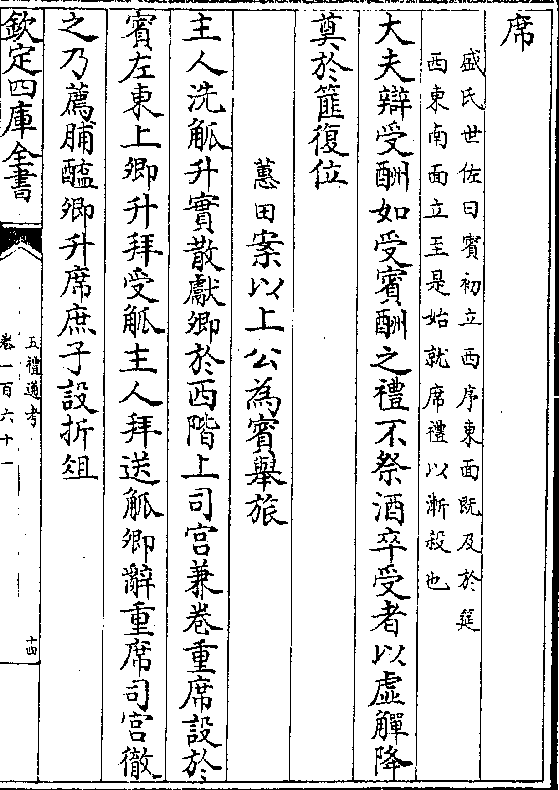 席
盛氏世佐曰賓初立西序東面既及於筵
西東南面立至是始就席禮以漸殺也
大夫辯受酬如受賓酬之禮不祭酒卒受者以虛觶降
奠於篚復位
蕙田案以上公為賓舉旅
主人洗觚升實散獻卿於西階上司宮兼卷重席設於
賓左東上卿升拜受觚主人拜送觚卿辭重席司宮徹
之乃薦脯醢卿升席庶子設折俎
欽定四庫全書
五禮通考
卷一百六十一
十四